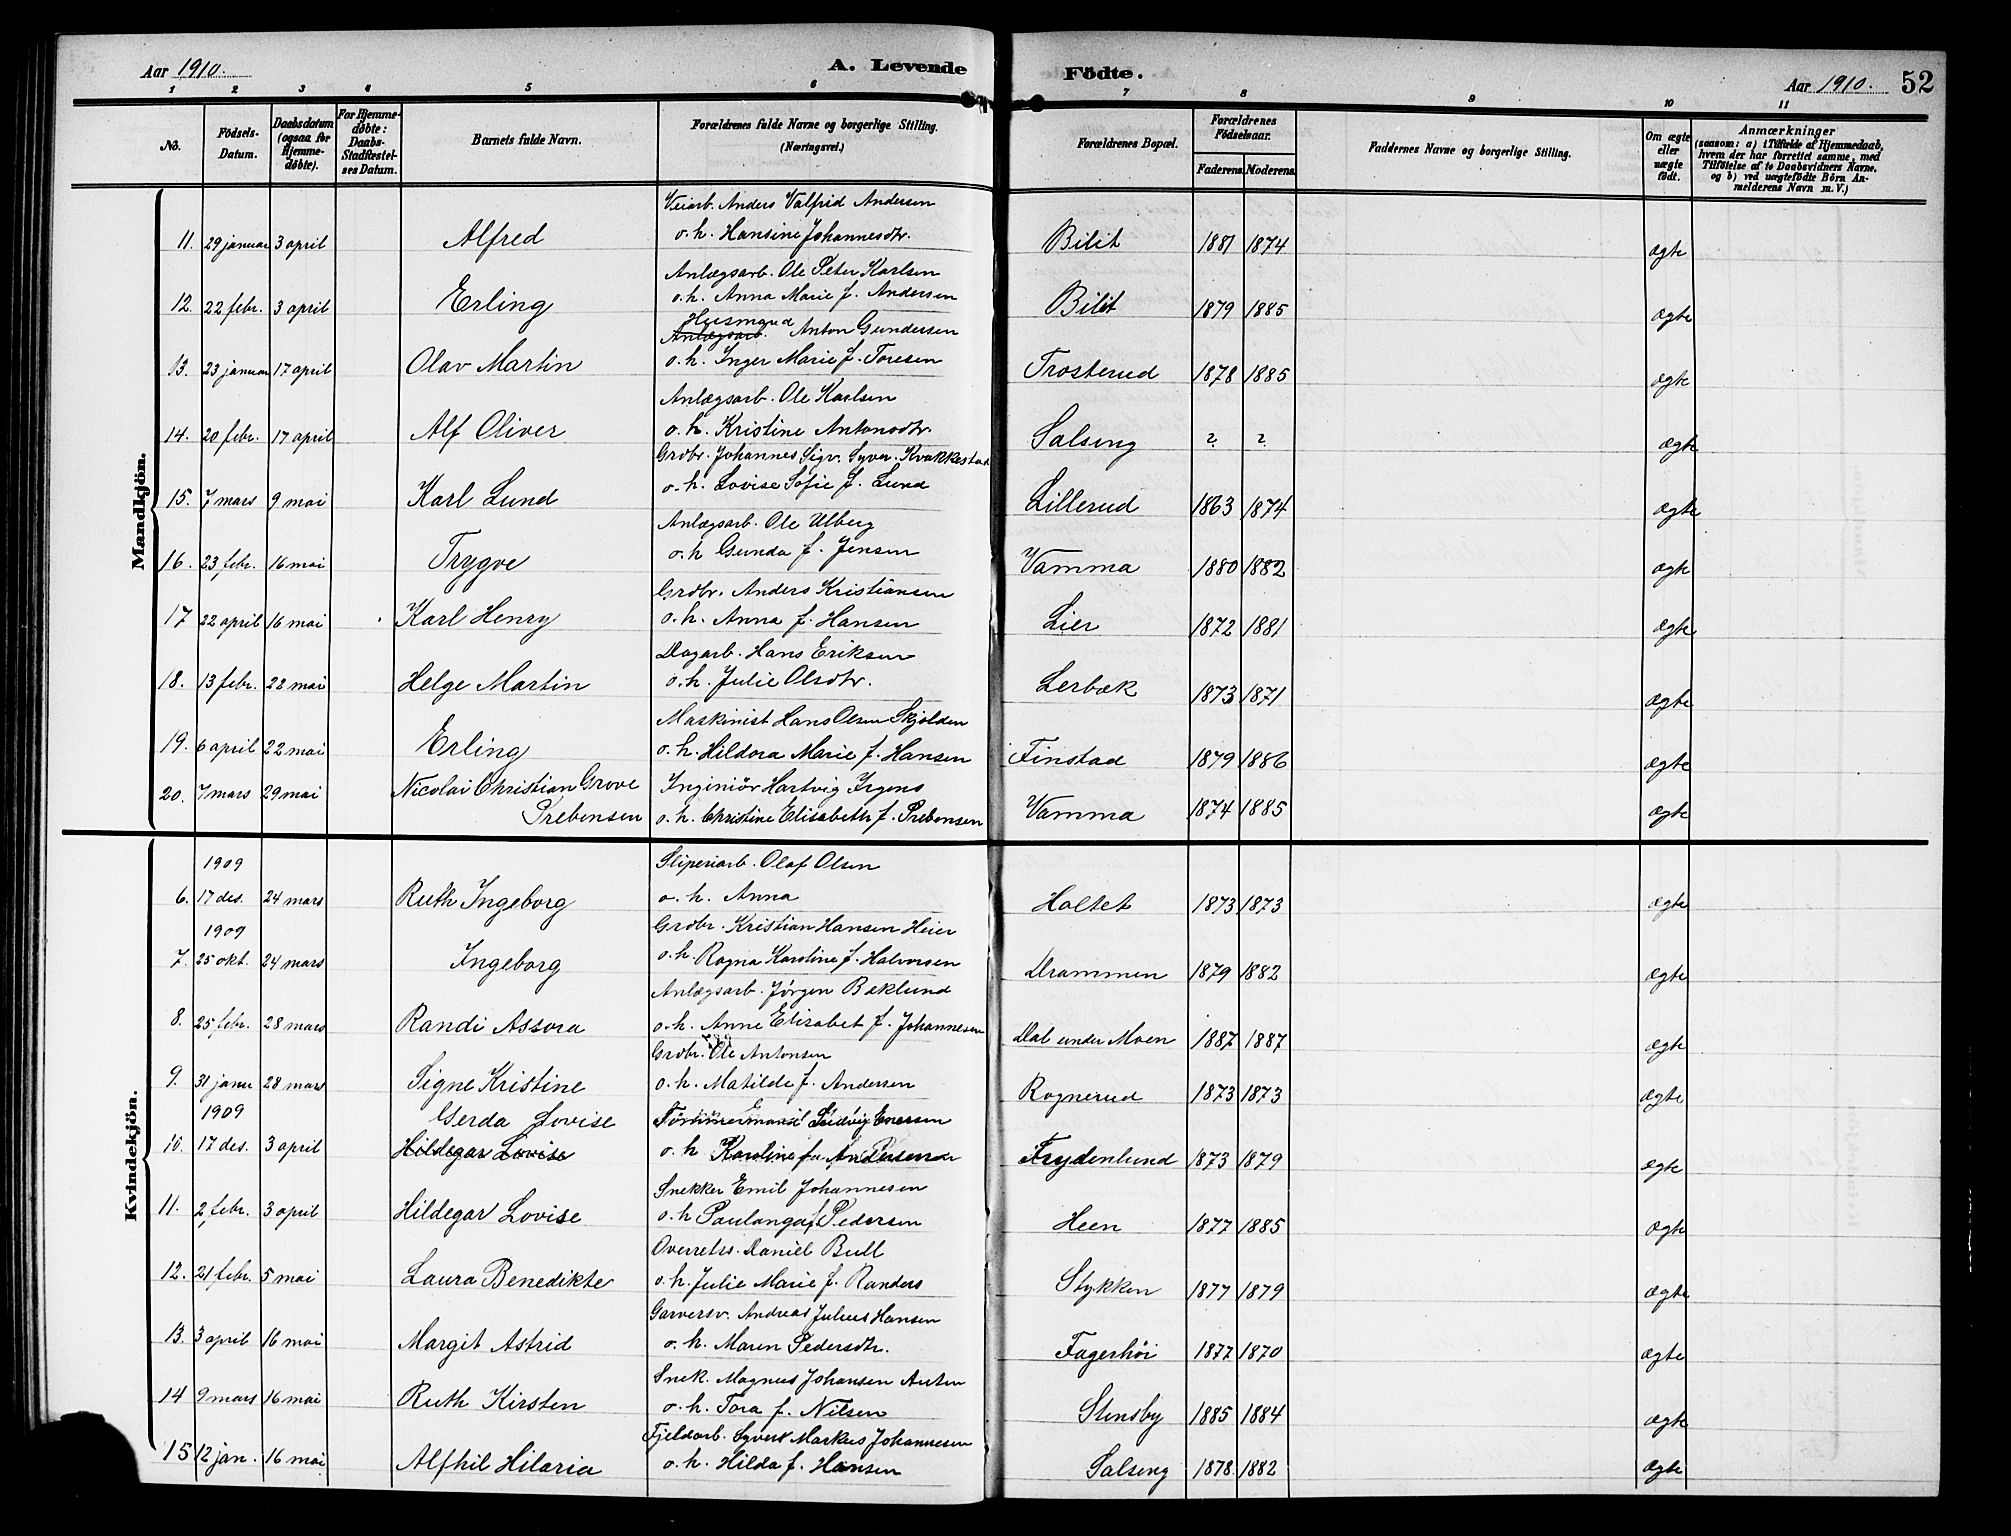 Aar 1910. A. Levende Födte. Aar 1910. 52
1 2 3 4 5 6 7 8 9 10 11
No. Födsels-Datum. Daabsdatum (ogsaa for Hjemme-döbte). For Hjemme-döbte: Daabs-Stadfæstel-ses Datum. Barnets fulde Navn. Forældrenes fulde Navne og borgerlige Stilling. (Næringsvei.) Forældrenes Bopæl. Forældrenes Födselsaar. Faderens Moderens Faddernes Navne og borgerlige Stilling. Om ægte eller uægte födt. Anmærkninger (saasom: a) i Tilfælde af Hjemmedaab, hvem der har forrettet samme, med Tilföielse af to Daabsvidners Navne, og b) ved uægtefödte Börn An-melderens Navn m. V.)
Mandkjön.
Veiarb. Anders Valfrid Andersen
11. 29 januar 3 april Alfred o. h. Hansine Johannesdtr. Bilit 1881 1874 ægte
Anlægsarb. Ole Peter Karlsen
12. 22 febr. 3 april Erling o. h. Anna Marie f. Andersen Bilit 1879 1885 ægte
Husmand
Anlægsarb. Anton Gundersen
13. 23 januar 17 april Olav Martin o. h. Inger Marie f. Toresen Trosterud 1878 1885 ægte
Anlægsarb. Ole Karlsen
14. 20 febr. 17 april Alf Oliver o. h. Kristine Antonsdtr. Salseng ? ? ægte
Grdbr. Johannes Sigv. Syver. Kvakkestad
15. 7 mars 9 mai Karl Lund o. h. Lovise Sofie f. Lund Lillerud 1863 1874 ægte
Anlægsarb. Ole Ulberg
16. 23 febr. 16 mai Trygve o. h Gunda f. Jensen Vamma 1880 1882 ægte
Grdbr. Anders Kristiansen
17 22 april 16 mai Karl Henry o. h. Anna f. Hansen Lier 1872 1881 ægte
Dagarb. Hans Eriksen
18. 13 febr. 22 mai Helge Martin o. h. Julie Olsdtr. Lerbæk 1873 1871 ægte
Maskinist Hans Olsen Skjolden
19. 6 april 22 mai Erling o. h. Hildora Marie f. Hansen Finstad 1879 1886 ægte
20. 7 mars 29 mai Nicolai Christian Grove Ingeniör Hartvig Irgens
Prebensen o. h. Christine Elisabeth f. Prebensen Vamma 1874 1885 ægte
Kvindekjön.
1909 Sliperiarb. Olaf Olsen
6. 17 des. 24 mars Ruth Ingeborg o. h. Anna Holtet 1873 1873 ægte
1909 Grdbr. Kristian Hansen Heier
7. 25 okt. 24 mars Ingeborg o. h. Ragna Karoline f. Halvorsen Drammen 1879 1882 ægte
Anlægsarb. Jörgen Beklund
8. 25 febr. 28 mars Randi Assora o. h. Anne Elisabet f. Johannesen Dal under Moen 1887 1887 ægte
Grdbr. Ole Antonsen
9. 31 janu 28 mars Signe Kristine o. h. Matilde f. Andersen Rognerud 1873 1873 ægte
1909 Gerda Lovise Tömmermand Ludvig Enersen
10. 17 des. 3 april Hildegar Lovise o. h Karoline f. Andersen Frydenlund 1873 1879 ægte
Snekker Emil Johannesen
11. 2 febr. 3 april Hildegar Lovise o. h Paulanga f. Pedersen Heen 1877 1885 ægte
Overretss. Daniel Bull
12. 21 febr. 5 mai Laura Benedikte o. h. Julie Marie f. Randers Stykken 1877 1879 ægte
Garversv. Andreas Julius Hansen
13. 3 april 16 mai Margit Astrid o. h. Maren Pedersdtr. Fagerhöi 1877 1870 ægte
Snek. Magnus Johansen Auten
14 9 mars 16 mai Ruth Kirsten o. h. Tora f. Nilsen Stensby 1885 1884 ægte
Fjeldarb. Syvert Markus Johannesen
15 12 jan. 16 mai Alfhil Hilaria o. h. Hilda f. Hansen Salseng 1878. 1882 ægte